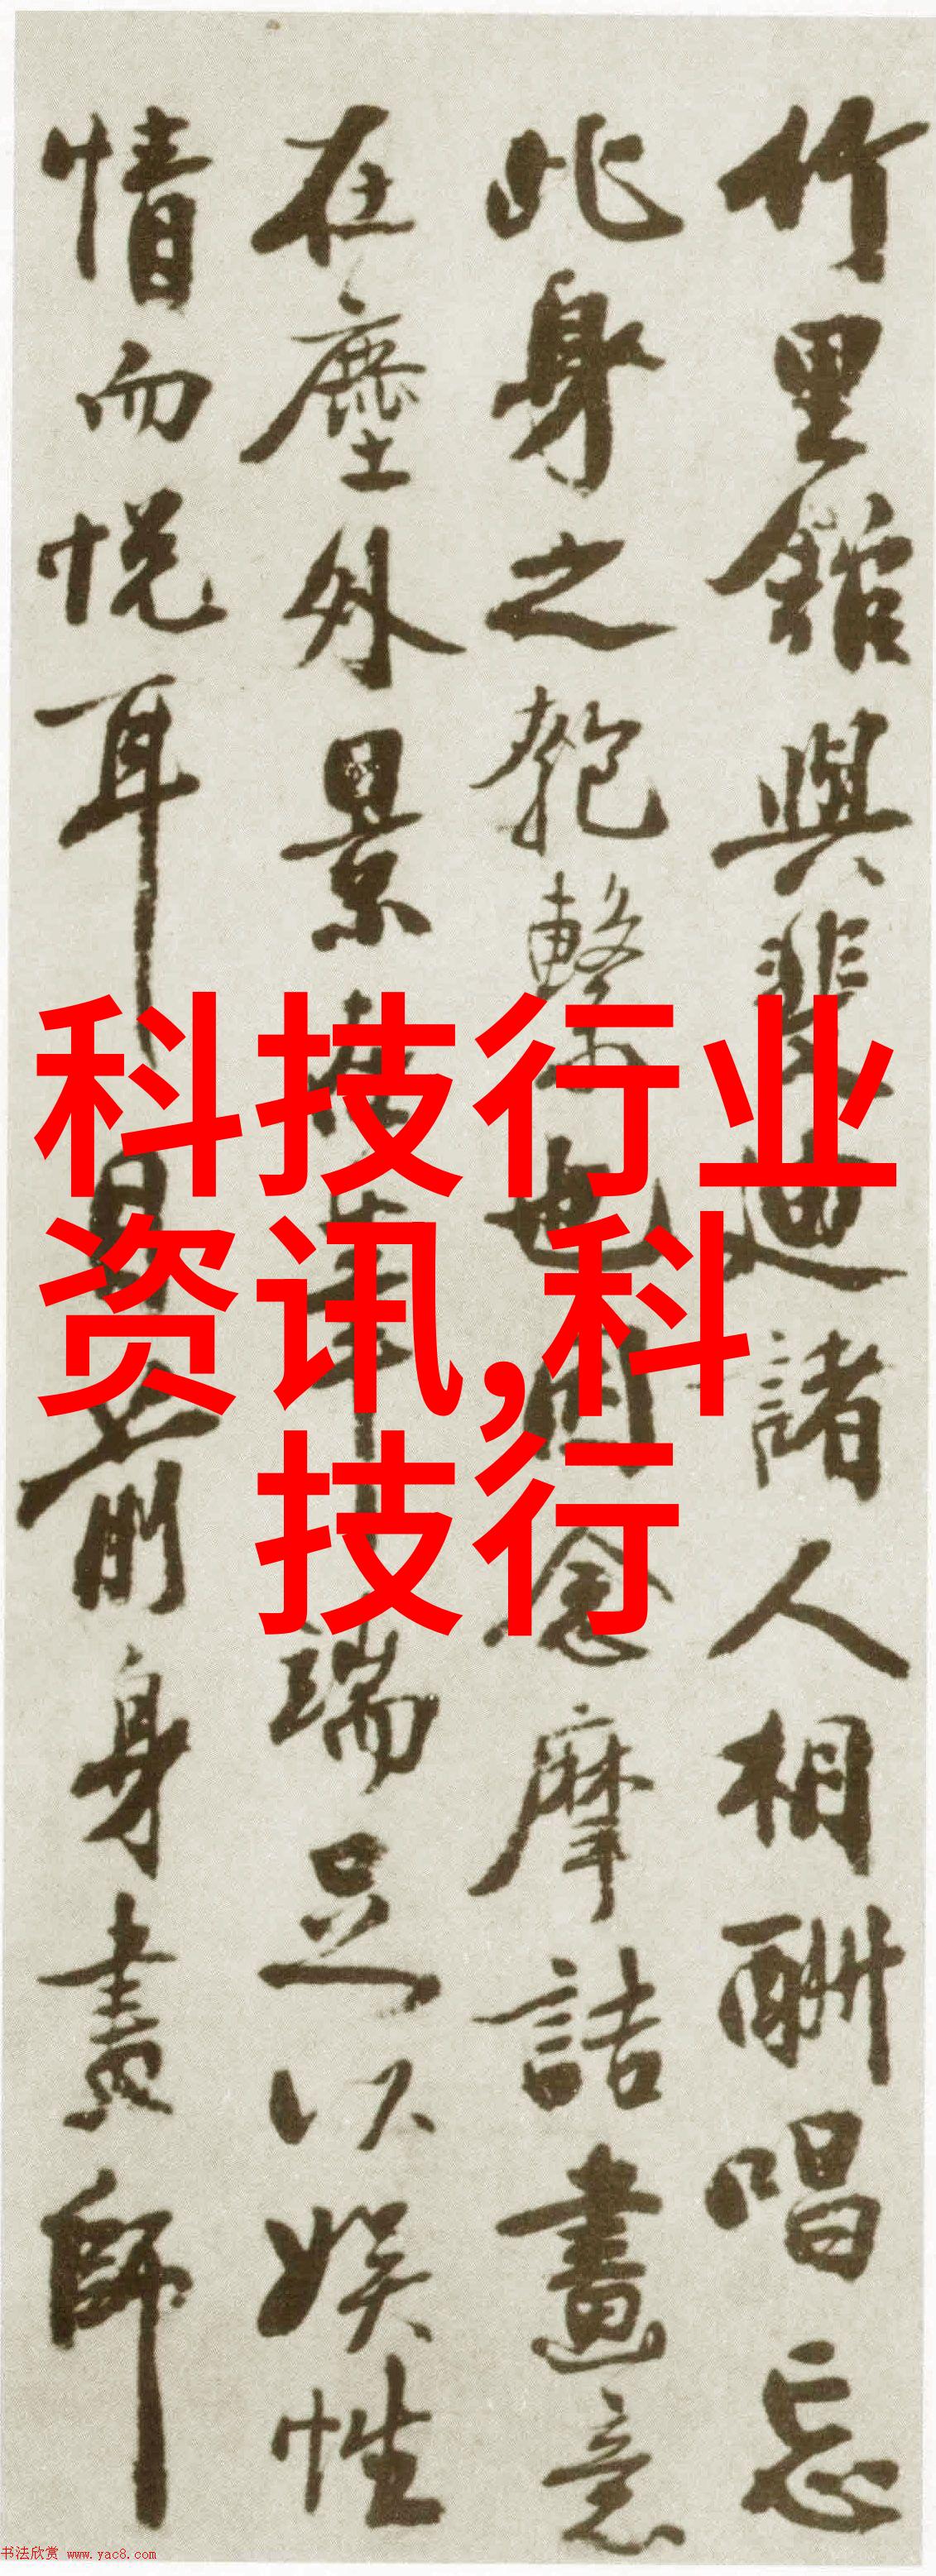 竹里館與裴迪諸人相酬唱忘
此身之匏繫也因念摩詰畫意
在塵外景在筆端足以娛性
情而悅耳目前身畫師
科技行业
资讯,科
技行
书法欣赏 www.yac8.com